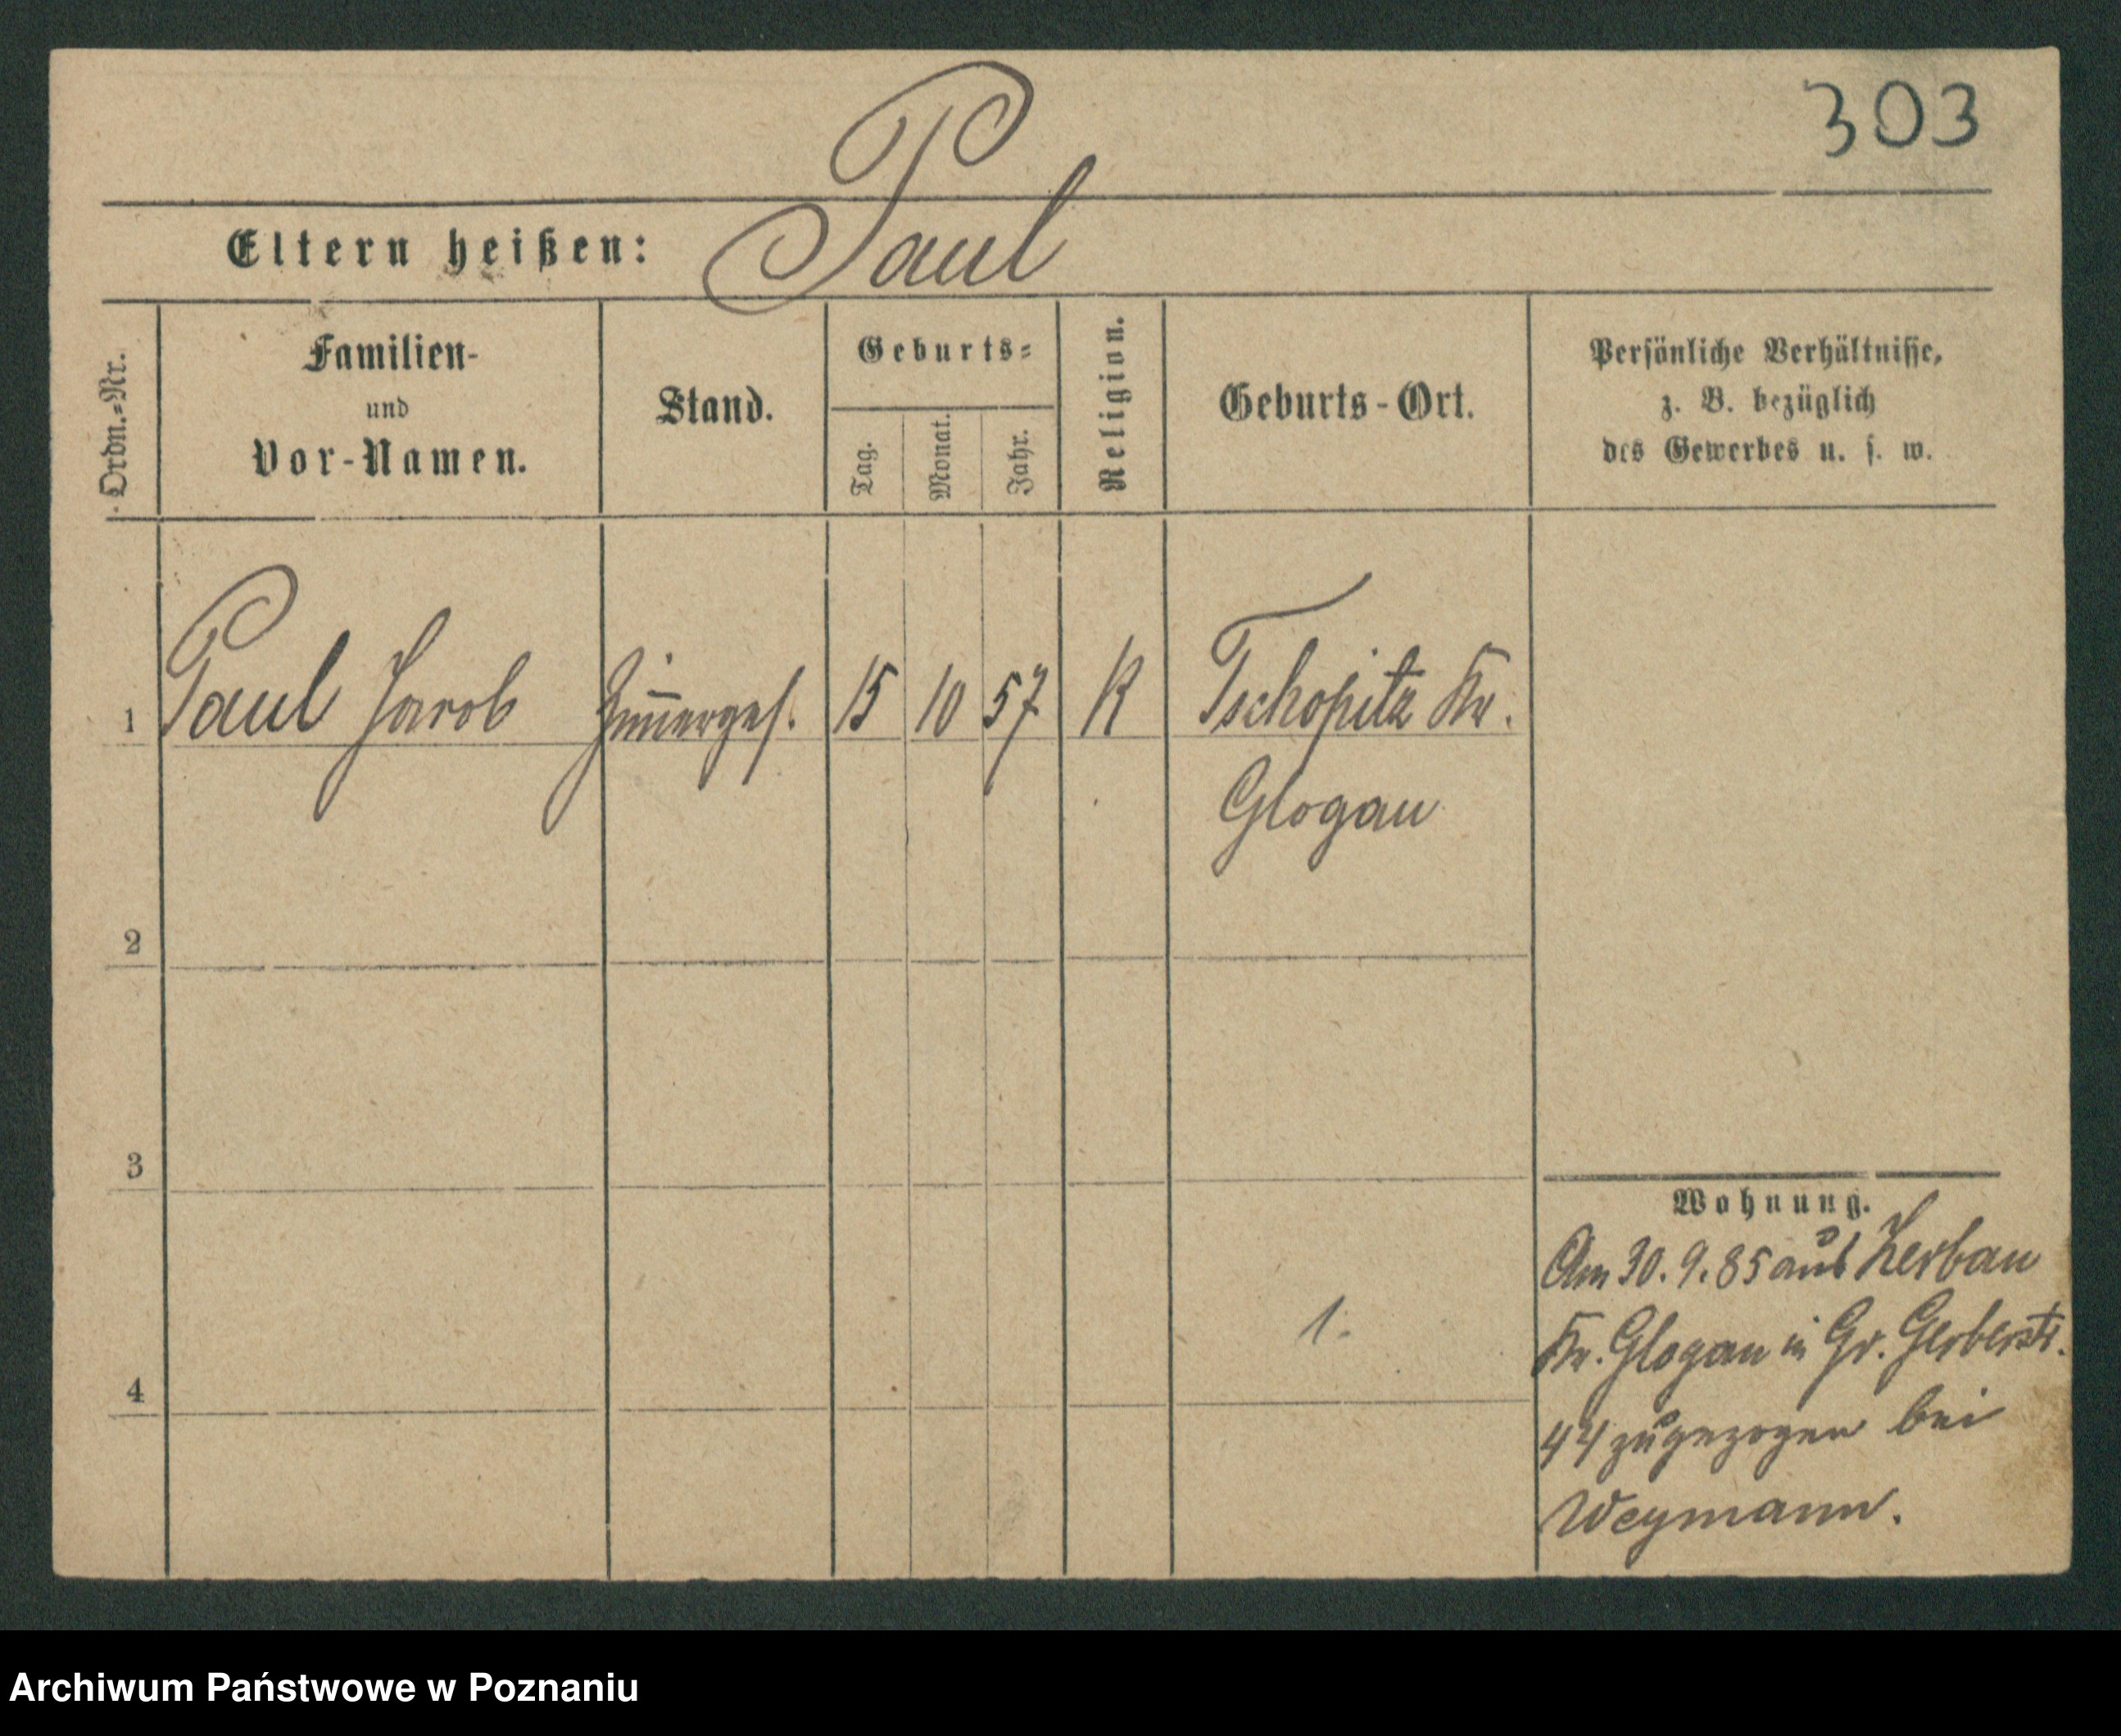 303
Paul
Eltern heißen:
Ordn.-Nr.
Familien-
und
Vor-Namen.
Stand.
Geburts-
Tag.
Monat.
Jahr.
Religion.
Geburts-Ort.
Persönliche Verhältnisse,
z. B. bezüglich
des Gewerbes u. s. w.
1 Paul Jacob Zim̅erges. 15 10 57 K Tschopitz Kr.
Glogau
2
3
4
1.
Wohnung.
Am 30. 9. 85 aus Zerbau
Kr. Glogau in Gr. Gerberstr.
44 zugezogen bei
Weymann.
Archiwum Państwowe w Poznaniu